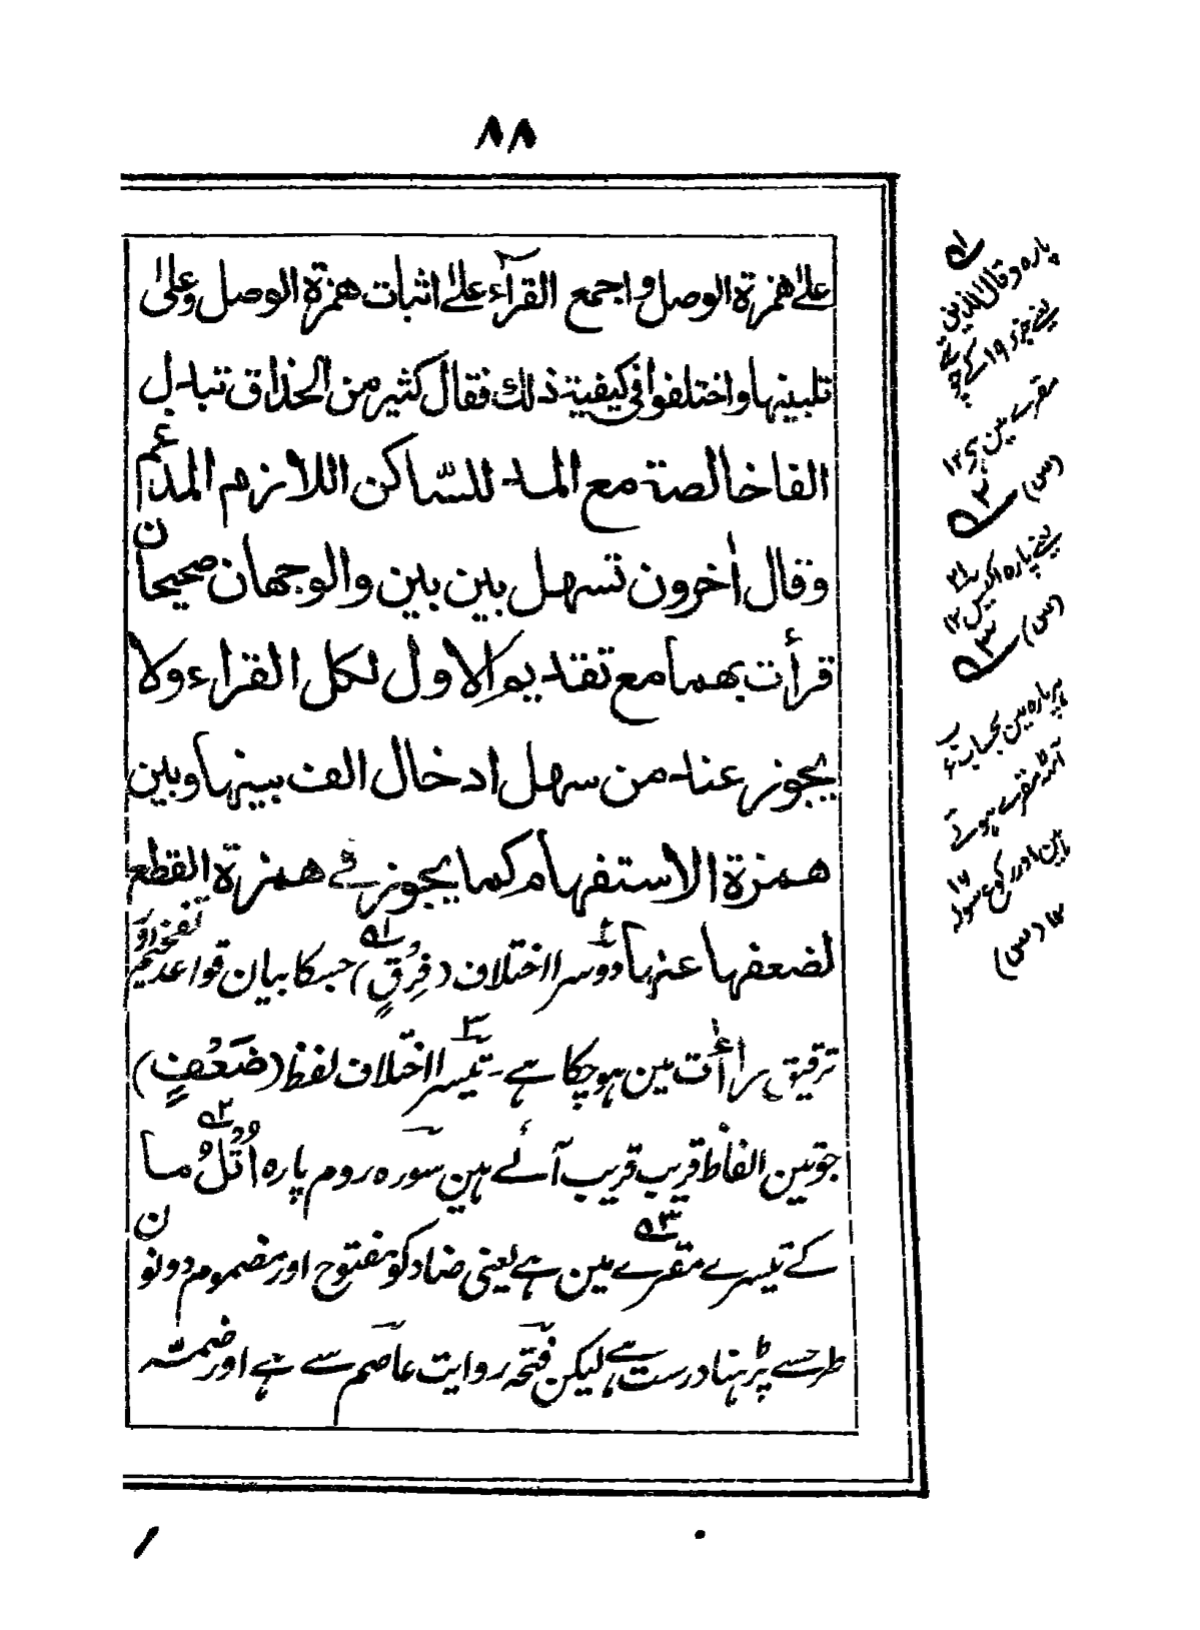 ۸۸
علیٰ همزة الوصل واجمع القرآء علیٰ اثبات همزة الوصل وعلیٰ
تليينها واختلفوا فی کیفیة ذلك فقال کثیر من الحذاق تبدل
الفا خالصة مع المد للساكن اللازم المدغم
وقال اٰخرون تسهل بين بين والوجهان صحیحان
قرأت بهما مع تقديم الاول لكل القراء ولا
يجوز عند من سهل ادخال الف بينها وبين
همزة الاستفهام كما يجوز فی همزة القطع
لضعفها عنها دوسرا اختلاف (فِرْقٍ) جسکا بیان قواعد تفخیم و
ترقیق راأت مین ہوچکا ہے۔ تیسرا اختلاف لفظ (ضَعْفٍ)
جو تین الفاظ قریب قریب آئے ہین سورہ روم پارہ اُتْلُ مَا
کے تیسرے مقرے مین ہے یعنی ضاد کو مفتوح اور مضموم دونون
طرحسے پڑہنا درست ہے لیکن فتحہ روایت عاصم سے ہے اور ضمہ
۱
پارہ وقال الذین
یعنے جزء ۱۹ کے چو
مقرے مین ہے ۱۲
(س)
۲
یعنے پارہ اکیس ۲۱
۱۲ (س)
۳
ہر پارہ مین بحساب
آٹھ مقرے ہوتے
ہین اور رکوع سولہ ۱۶
۱۲ (س)